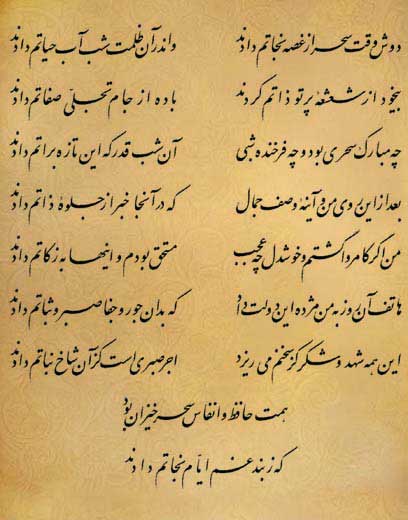 دوش وقت سحر از غصه نجاتم دادند واندر آن ظلمت شب آب حیاتم دادند
بیخود از شعشعهٔ پرتو ذاتم کردند باده از جام تجلّی صفاتم دادند
چه مبارک سحری بود و چه فرخنده شبی آن شب قدر که این تازه براتم دادند
بعد از این روی من و آینهٔ وصف جمال که در آنجا خبر از جلوهٔ ذاتم دادند
من اگر کامروا گشتم و خوشدل چه عجب مستحق بودم و اینها به زکاتم دادند
هاتف آن روز به من مژده این دولت داد که بدان جور و جفا صبر و ثباتم دادند
این همه شهد و شکر کز سخنم می ریزد اجر صبری است کز آن شاخ نباتم دادند
همت حافظ و انفاس سحر خیزان بود
که ز بند غم ایّام نجاتم دادند